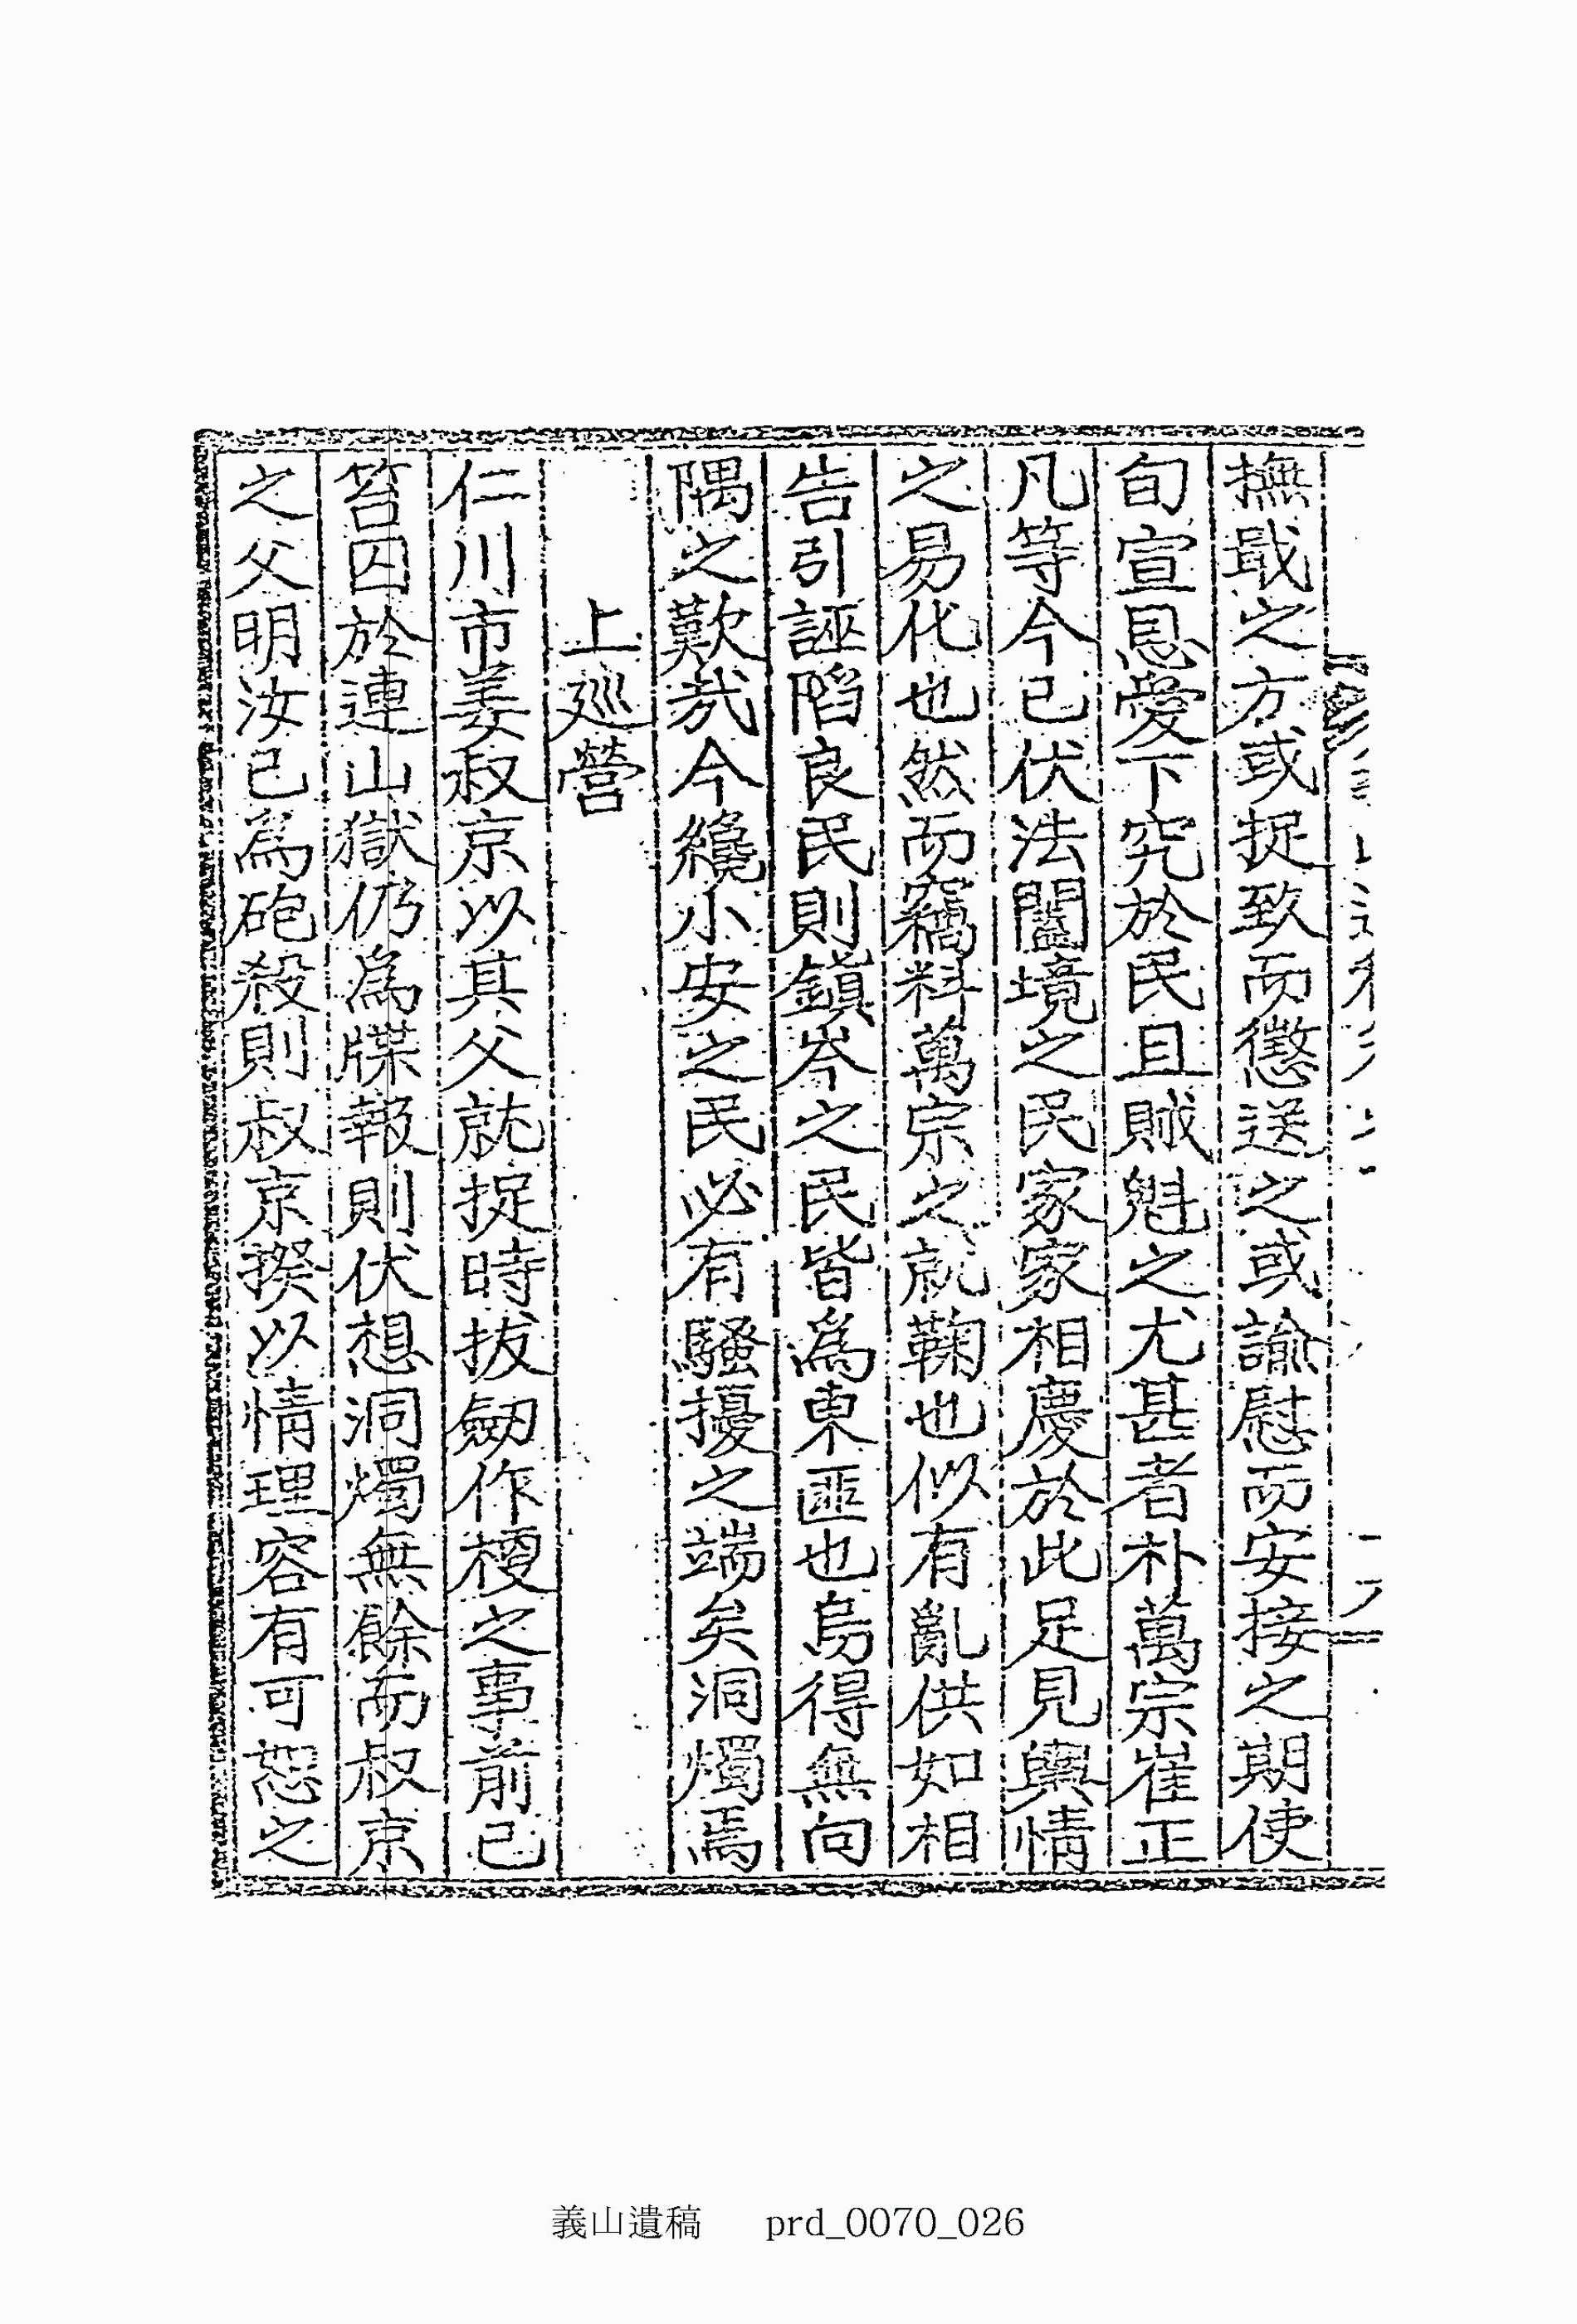 撫戢之方或捉致而懲送之或諭慰而安接之期使
旬宣恩愛下究於民且賊魁之尤甚者朴萬宗崔正
凡等今已伏法闔境之民家家相慶於此足見輿情
之易化也然而竊料萬宗之就鞠也似有亂供如相
告引誣陷良民則鎭岑之民皆爲東匪也烏得無向
隅之歎哉今纔小安之民必有騷擾之端矣洞燭焉
上廵營
仁川市姜叔京以其父就捉時拔劒作梗之事前已
笞囚於連山獄仍爲牒報則伏想洞燭無餘而叔京
之父明汝已爲砲殺則叔京揆以情理容有可恕之
義山遺稿 prd_0070_026